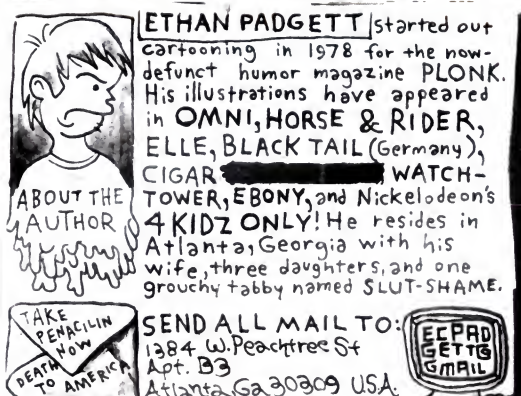 ETHAN PADGETT started out
cartooning in 1978 for the now-
defunct humor magazine PLONK.
His illustrations have appeared
in OMNI, HORSE & RIDER,
ELLE, BLACK TAIL (Germany),
CIGAR WATCH-
TOWER, EBONY, and Nickelodeon's
4 KIDZ ONLY! He resides in
Atlanta, Georgia with his
wife, three daughters, and one
grouchy tabby named SLUT-SHAME.
ABOUT THE
AUTHOR
TAKE
PENACILIN
NOW
DEATH
TO AMERICA
SEND ALL MAIL TO:
1384 W. Peachtree St
Apt. B3
Atlanta, Ga 30309 U.S.A.
ECPAD
GETT@
GMAIL